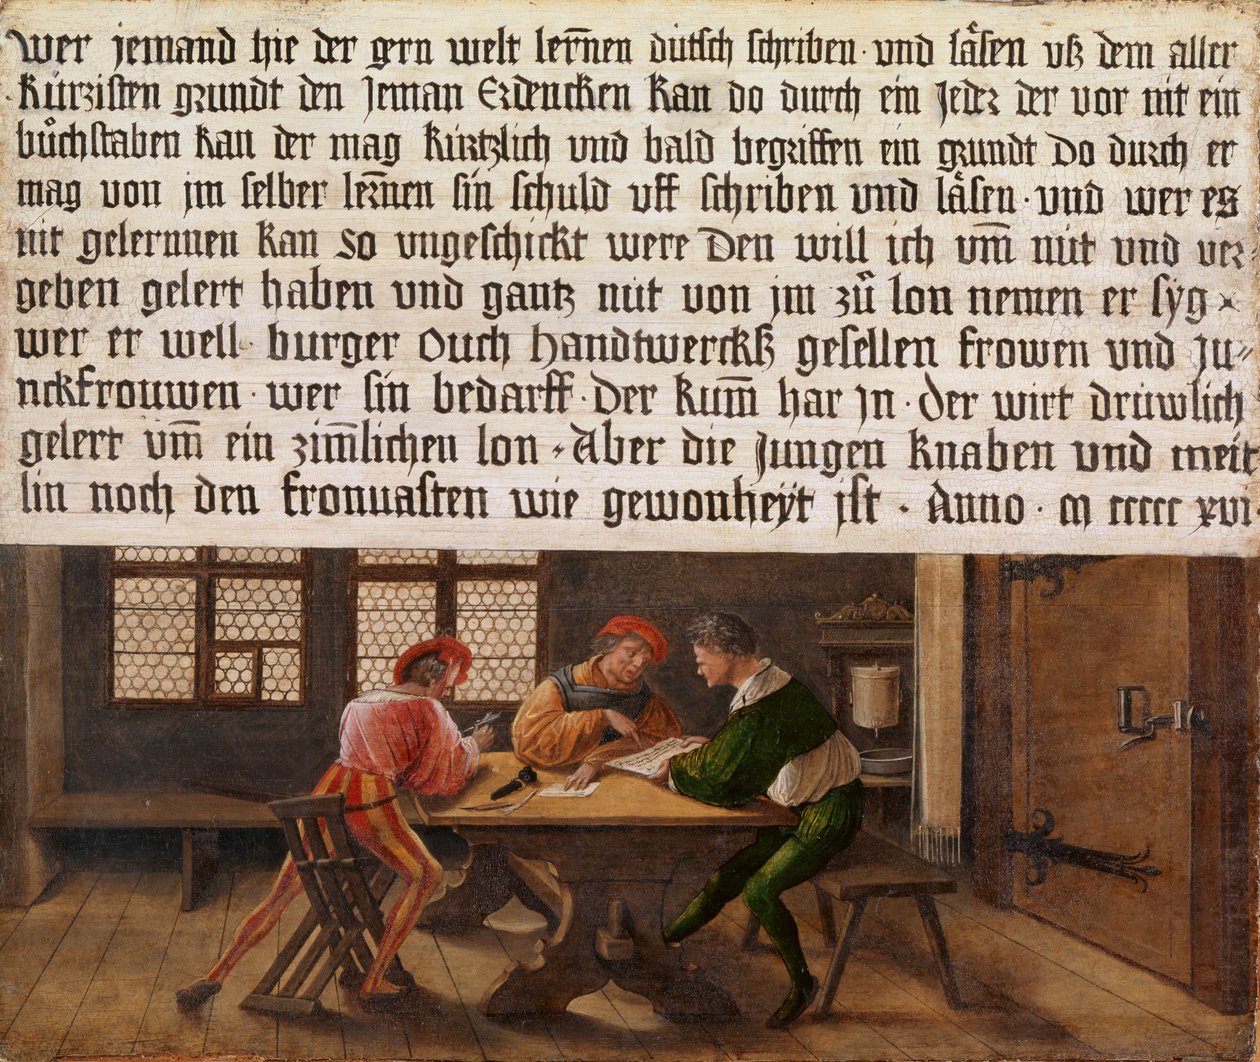 wer jemand hie der gern welt ler̄nen dütsch schriben · vnd låsen vſz dem aller
kürzisten grundt den Jeman Erdencken kan do durch ein Jeder der vor nit ein
bůchstaben kan der mag kürtzlich vnd bald begriffen ein grundt do durch er
mag von jm selber ler̄nen sin schuld vff schriben vnd låsen · vnd wer es
nit gelernnen kan so vngeschickt were Den will ich vm̄ nüt vnd ver-
geben gelert haben vnd gantz nüt von jm zů lon nemen er syg ×
wer er well · burger ouch handtwerckſz gesellen frowen vnd ju=
nckfrouwen · wer sin bedarff · der kum̄ har jn · der wirt drüwlich
gelert vm̄ ein zim̄lichen lon · Aber die jungen knaben vnd meit
lin noch den fronuasten wie gewonheÿt ist · Anno · m ccccc xvi